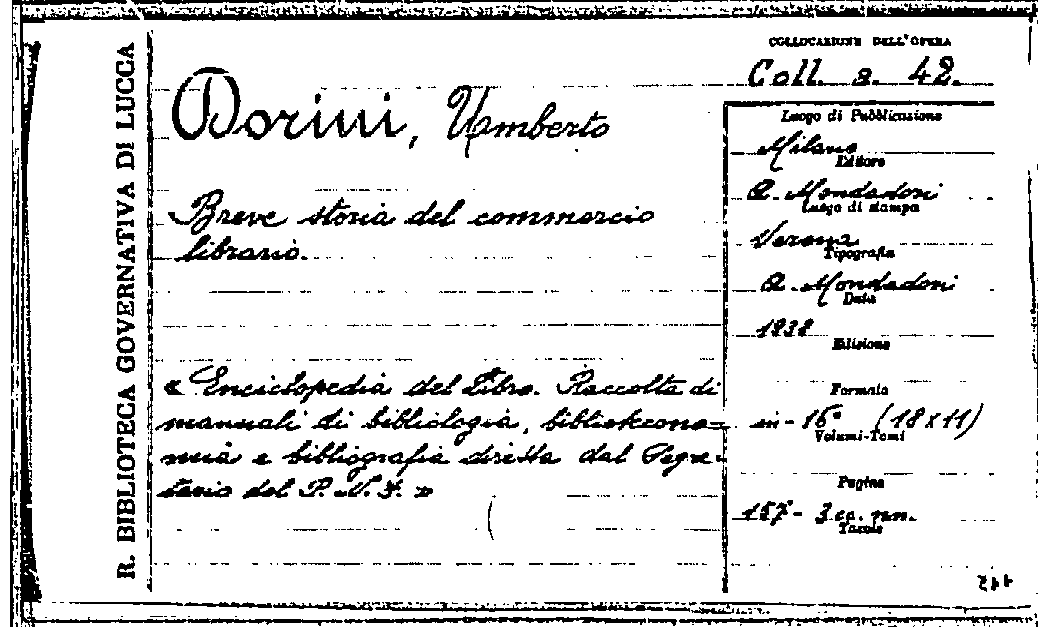 R. BIBLIOTECA GOVERNATIVA DI LUCCA
COLLOCAZIONE DELL'OPERA
Coll. a. 42.
Dorini, Umberto
Breve storia del commercio
librario.
« Enciclopedia del Libro. Raccolta di
manuali di bibliologia, biblioteconomia=
mia e bibliografia diretta dal Segre-
tario del P. N. F. »
Luogo di Pubblicazione
Milano
Editore
A. Mondadori
Luogo di stampa
Verona
Tipografia
A. Mondadori
Data
1938
Edizione
Formato
in-16° (18x11)
Volumi-Tomi
Pagine
157 - 3 cc. nn.
Tavole